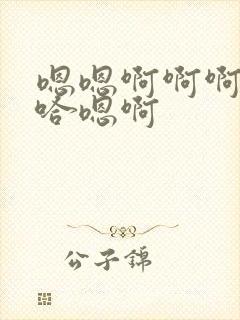 嗯嗯啊啊啊
哈嗯啊
公子锦